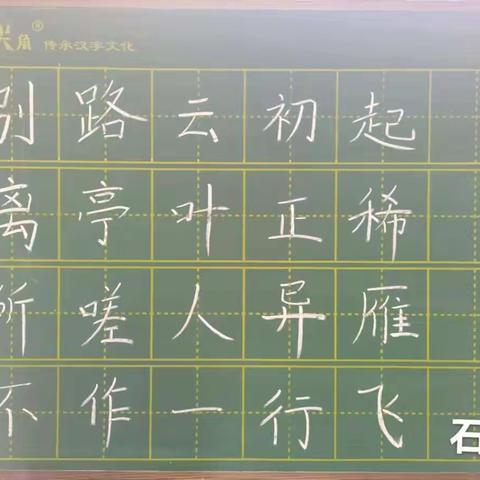 角®
传承汉字文化
别路云初起
离亭叶正稀
所嗟人异雁
不作一行飞
石